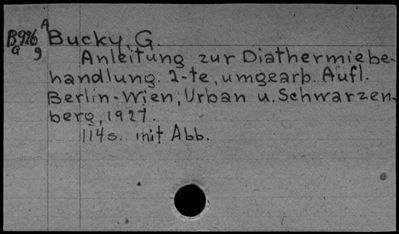 A
B926 Bucky, G.
a g
Anleitung zur Diathermiebe-
handlung. 2-te, umgearb. Aufl.
Berlin-Wien, Urban u. Schwarzen-
berg, 1927.
114s. mit Abb.